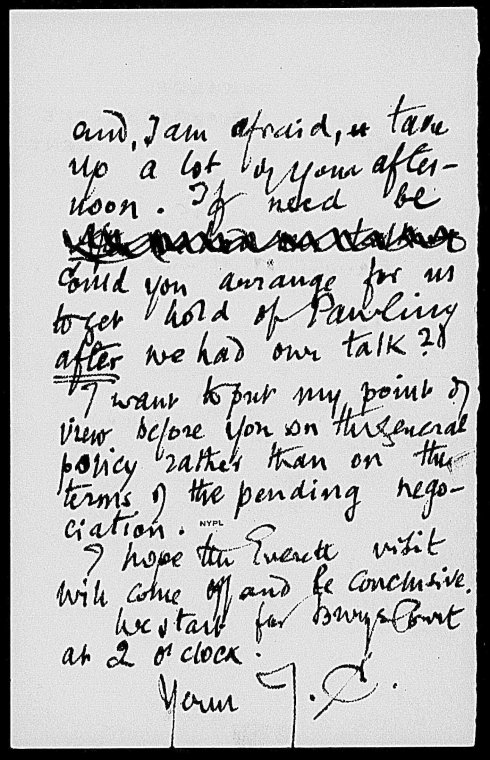 and, I am afraid, to take
up a lot of your after-
noon. If need be
could you arrange for us
to get hold of Pawling
after we had our talk?
I want to put my point of
view before you on the general
policy rather than on the
terms of the pending nego-
ciation.
NYPL
I hope the Everett visit
will come off and be conclusive.
We start for Court
at 2 o'clock.
Yours J. C.